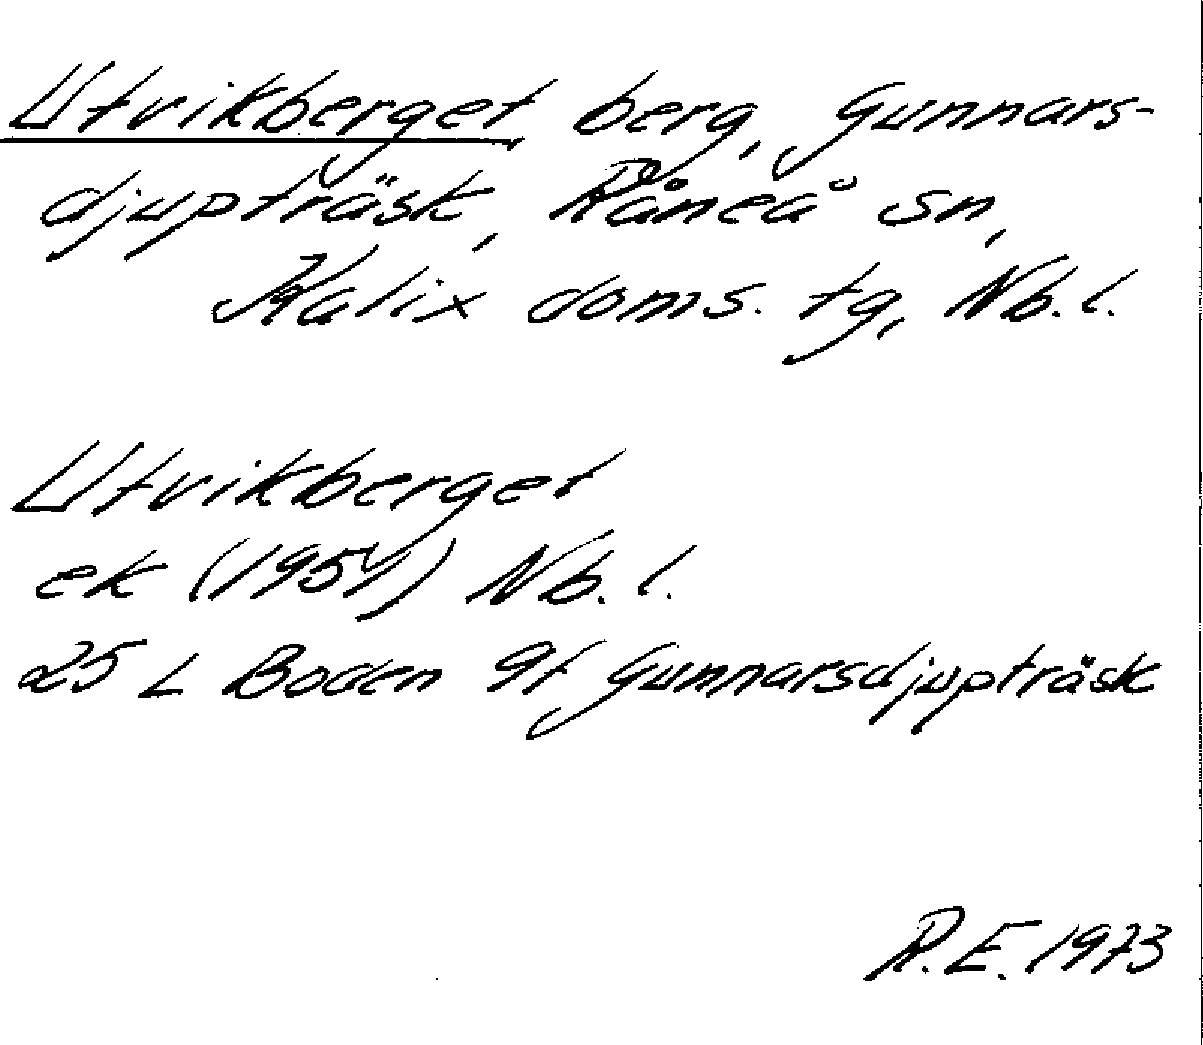 Utvikberget berg, Gunnars-
djupträsk, Råneå sn,
Kalix doms. tg, Nb.l.
Utvikberget
ek (1951) Nb.l.
25 L Boden 9f Gunnarsdjupträsk
R.E. 1973